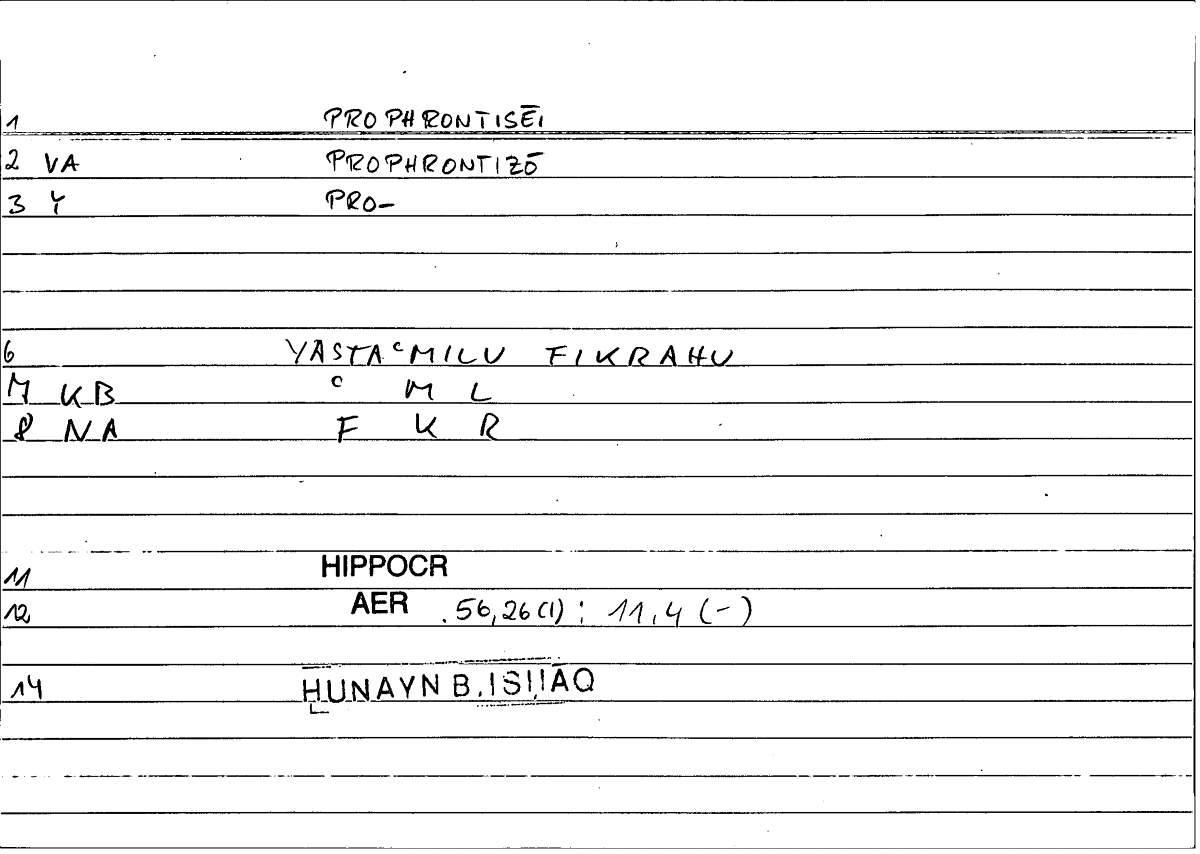 1 PROPHRONTISĒI
2 VA PROPHRONTIZŌ
3 Y PRO-
6 YASTAᶜMILU FIKRAHU
7 KB ᶜ M L
8 NA F K R
11 HIPPOCR
12 AER .56,26(1) ; 11,4 (-)
14 ḤUNAYN B. ISḤĀQ